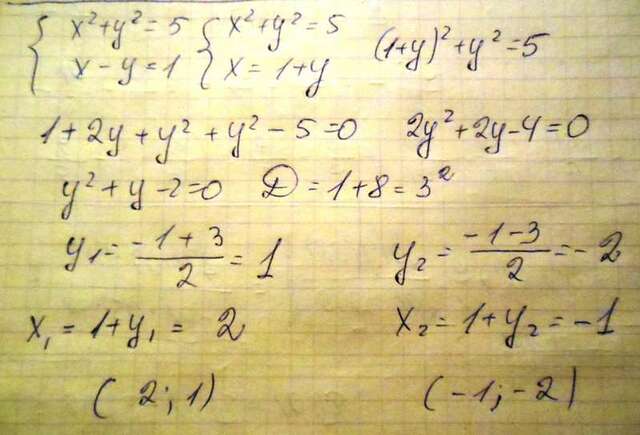 { x²+y²=5 { x²+y²=5 (1+y)²+y²=5
x-y=1 x=1+y
1+2y+y²+y²-5=0 2y²+2y-4=0
y²+y-2=0 D=1+8=3²
y₁=(-1+3)/2=1 y₂=(-1-3)/2=-2
x₁=1+y₁=2 x₂=1+y₂=-1
(2;1) (-1;-2)